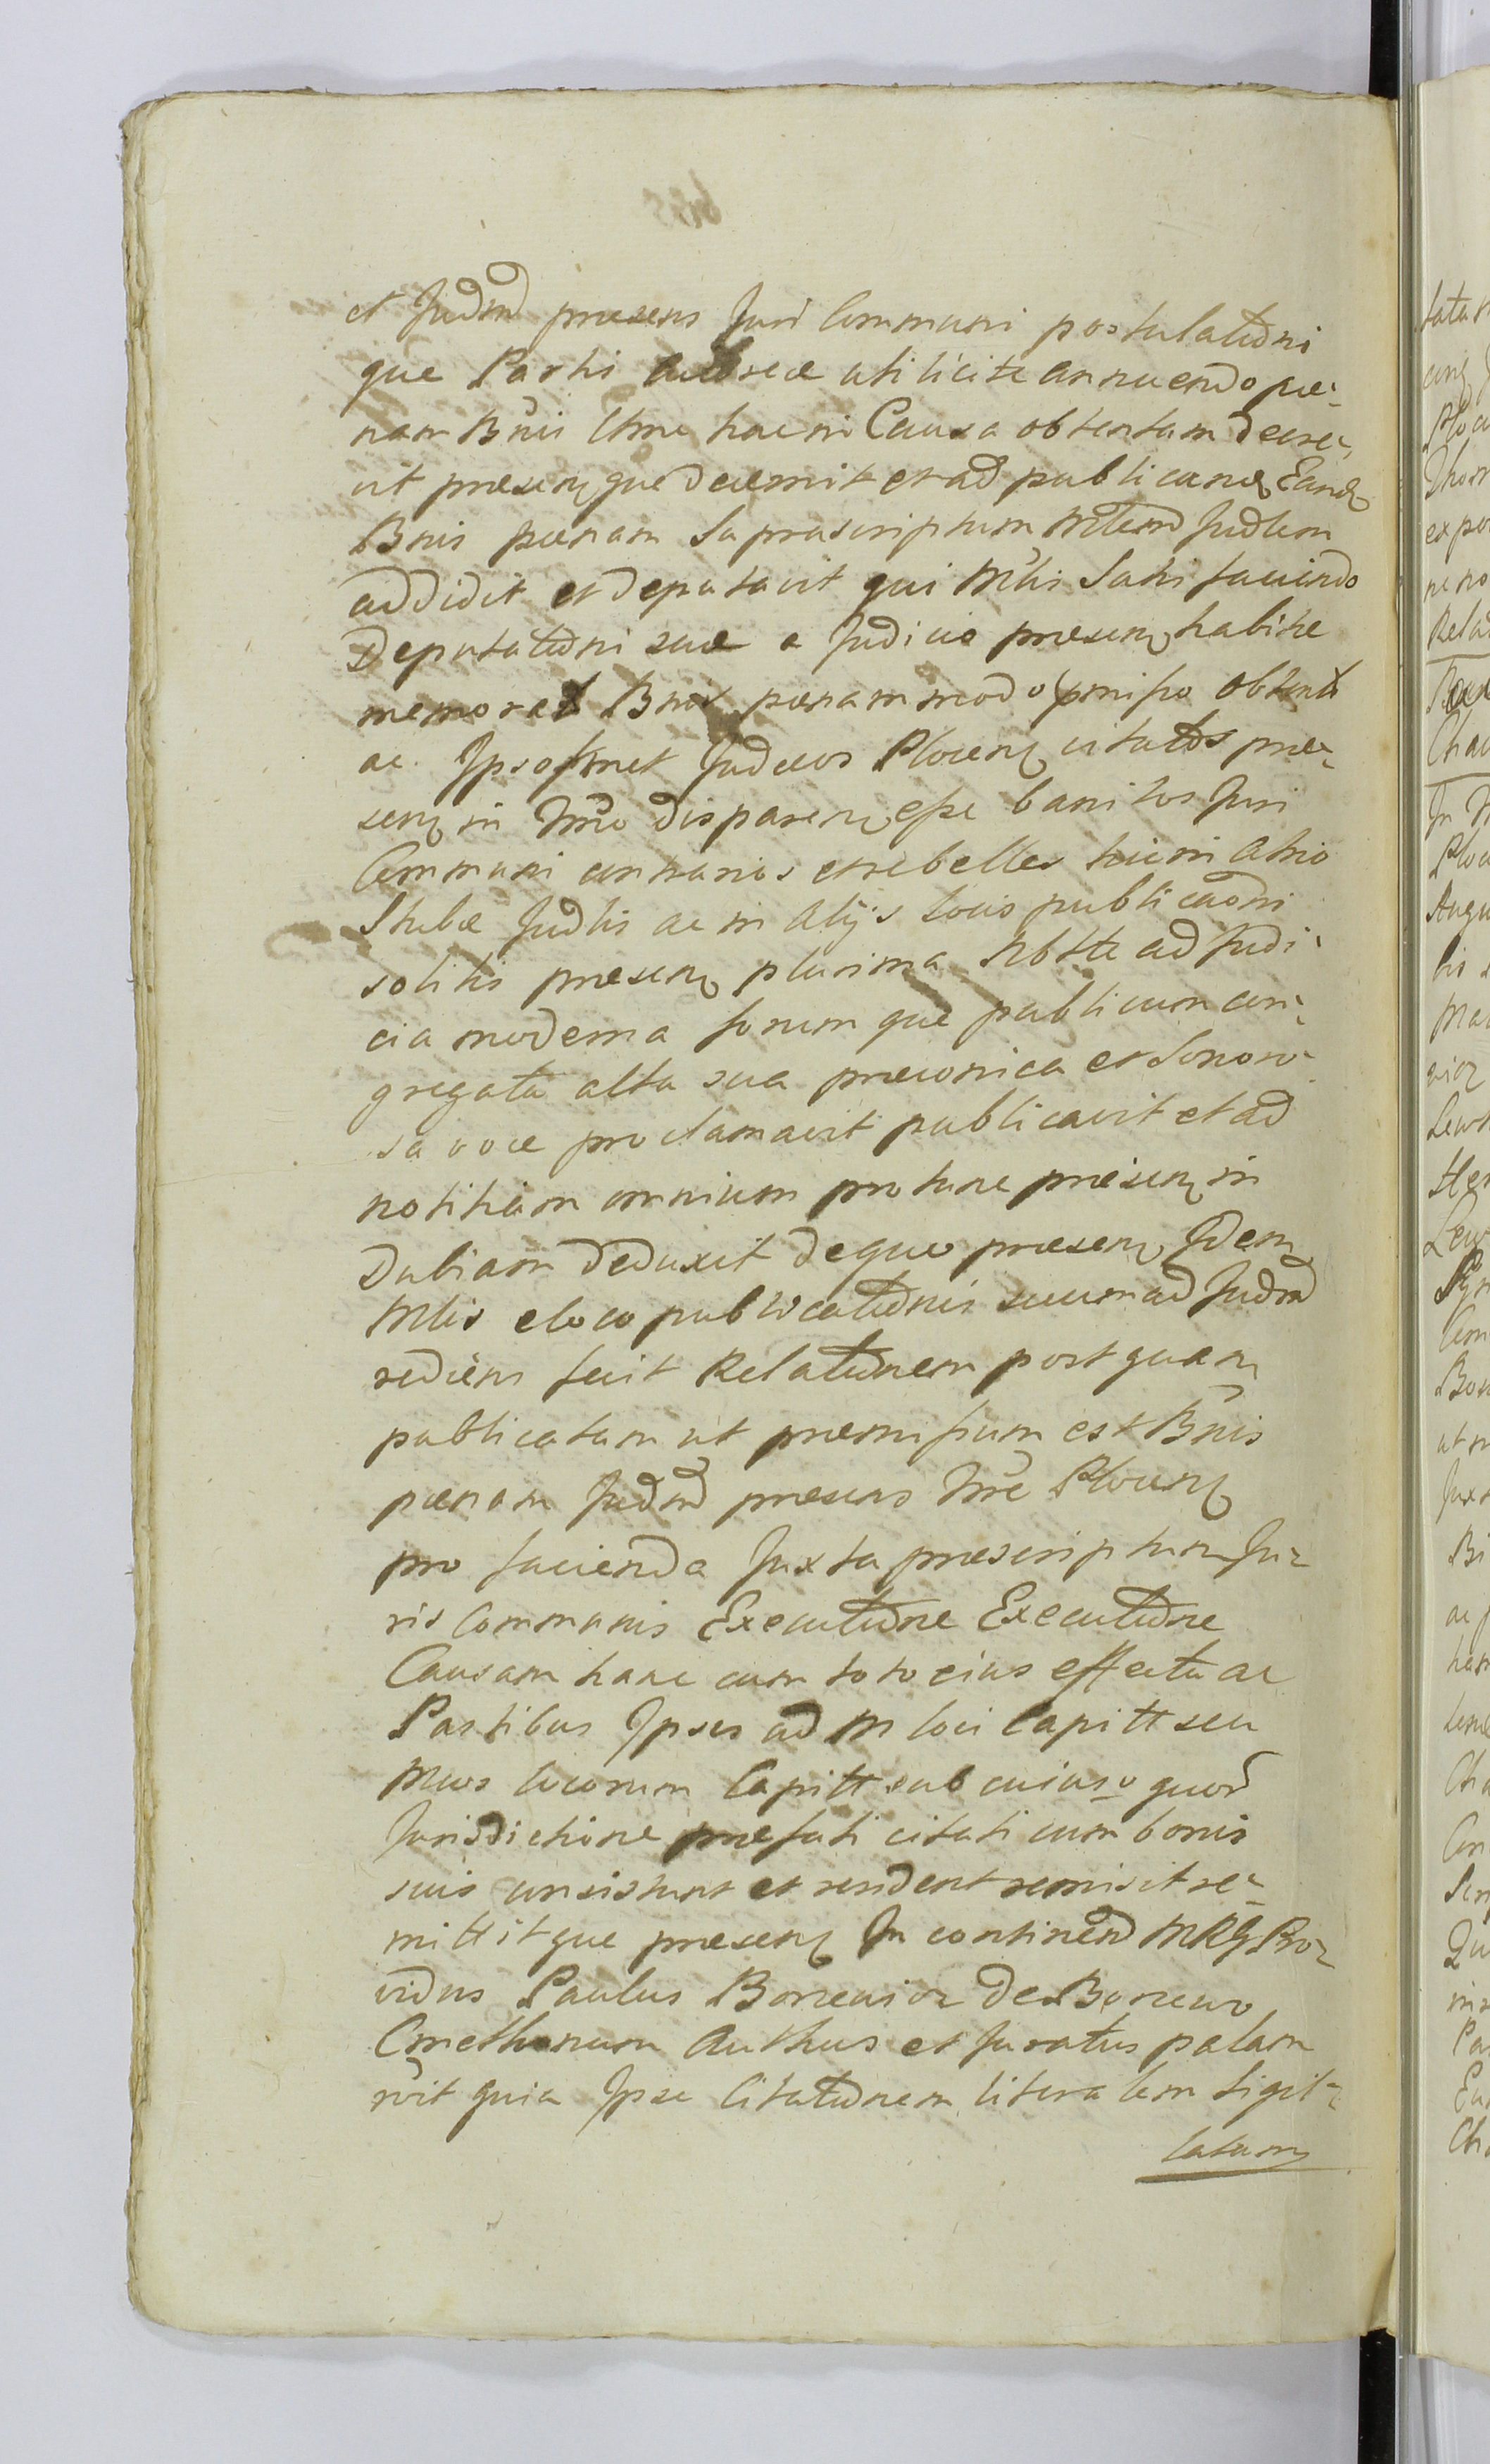 et Judm praesens Juri Communi postulationi
que Parti Actoreae uti licite annuendo pae-
nam Bnis ttme hac in Causa obtentam decre-
vit praesenq que decernit et ad publicanq Eanq
Bnis paenam Suprascriptum Mtlem Judlem
addidit et deputavit qui Mtlis Satis faciendo
Deputationi suae a Judicio praesenq habitae
memorat Bnis paenam modo praemisso obtent
ac Ipsosmet Judaeos Plocenq citatos prae-
senq in Tmno disparenq esse banitos Juri
Communi contrarios et rebelles hic in Atrio
Stubae Judlis ac in Alijs locis publicaoni
solitis praesenq plurima Nbtte ad Judi-
cia moderna forum que publicum con-
gregata alta sua praeconica et sonoro-
sa voce proclamavit publicavit et ad
notitiam omnium pro tunc praesenq in
Dubiam deduxit de quo praesenq Idem
Mtlis e loco publicationis suum ad Judm
rediens fecit Relationem post quam
publicatam ut praemissum est Bnis
paenam Judm praesens Trre Plocenq
pro facienda Juxta praescriptum Ju-
ris Communis Executione Executione
Causam hanc cum toto eius effectu ac
Partibus Ipsis ad M loci Capitt seu
Mcos locorum Capitt sub cuius v quor
Jurisdictione praefati citati cum bonis
suis consistunt et resident remisit re-
mittit que praesenq In continend MRG Pro-
vidus Paulus Borrevicz de Borrewo
Cmethonum Authus et Juratus palam
rvit quia Ipse Citationem literalem Sigil-
latam